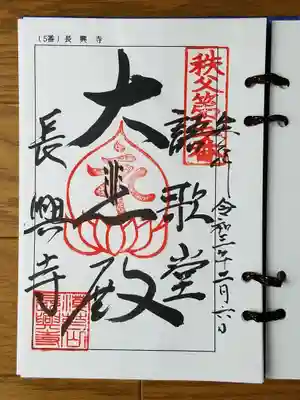 (5番) 長興寺
奉拝
令和三年二月六日
秩父第五番
語歌堂
大悲殿
長興寺